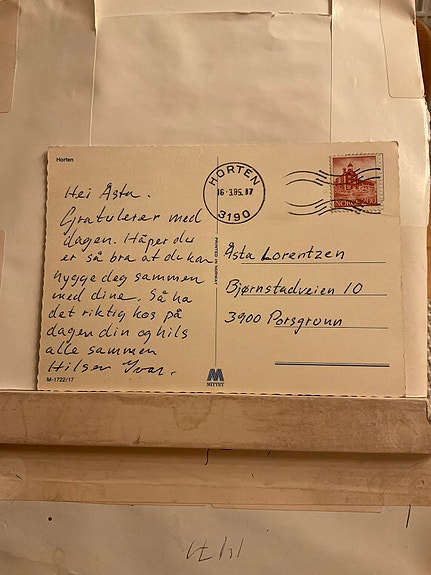 Horten
Hei Åsta.
Gratulerer med
dagen. Håper du
er så bra at du kan
hygge deg sammen
med dine. Så ha
det riktig kos på
dagen din og hils
alle sammen
Hilsen Yvar.
M-1722/17
PRINTED IN NORWAY
HORTEN
16-3.85.17
3190
NORGE 200
Åsta Lorentzen
Bjørnstadveien 10
3900 Porsgrunn